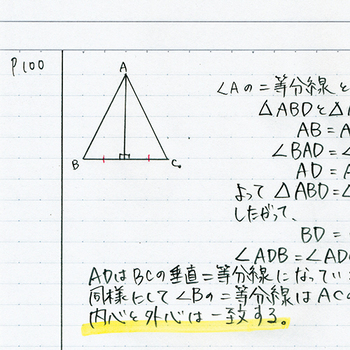 P100
A
B
C
∠Aの二等分線と
△ABDと△
AB = A
∠BAD = ∠
AD = A
よって △ABD =
したがって、
BD =
∠ADB = ∠AD
ADはBCの垂直二等分線になってい
同様にして ∠Bの二等分線はACの
内心と外心は一致する。